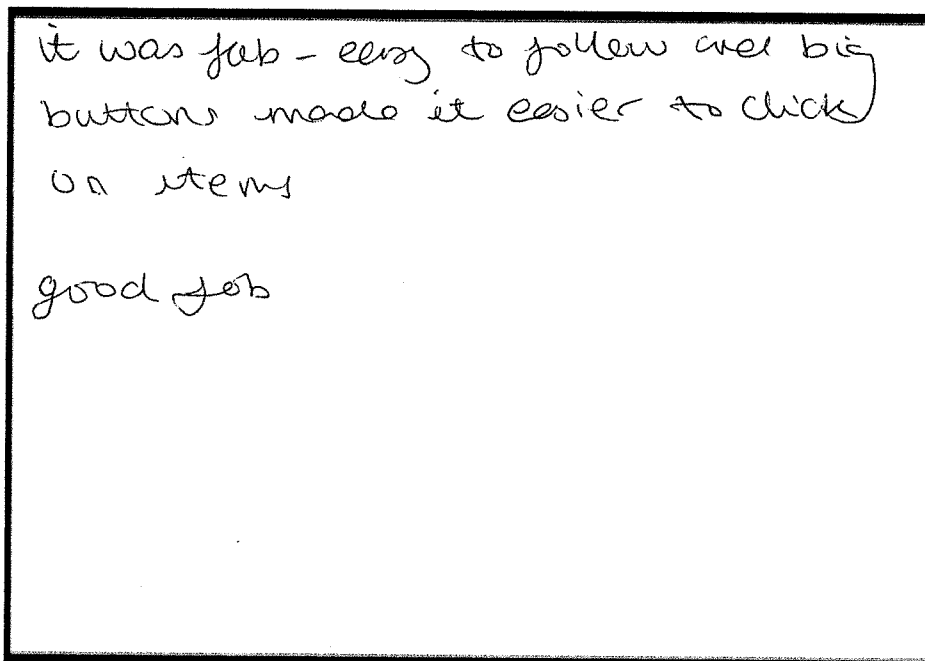 it was fab - easy to follow and big
buttons made it easier to click
on items
good job